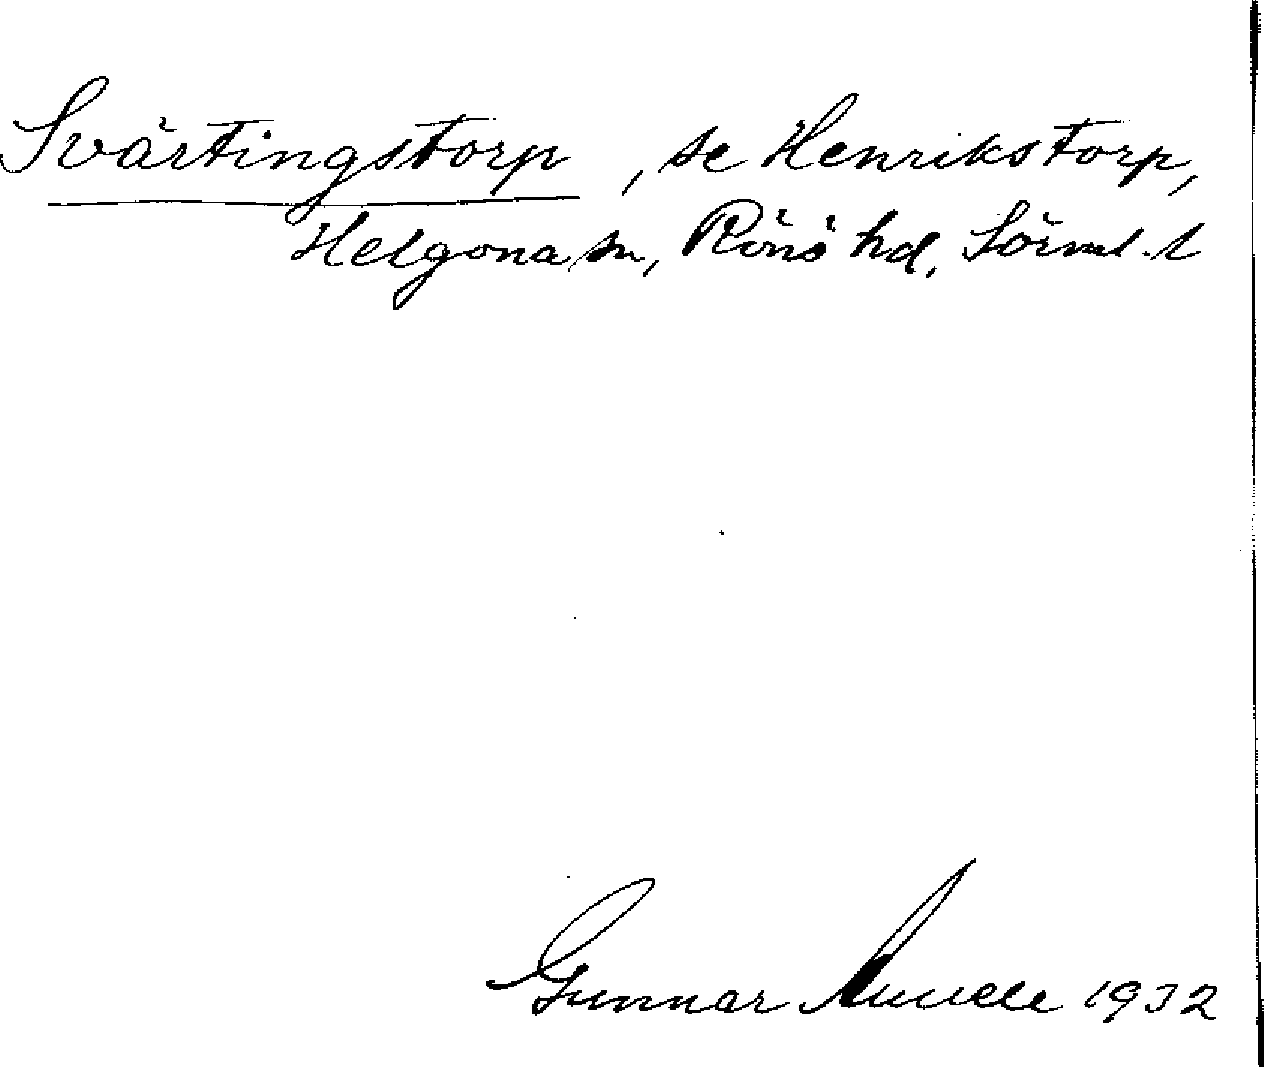 Svärtingstorp, se Henrikstorp,
Helgona sn, Rönö hd, Sörml. l
Gunnar 1932